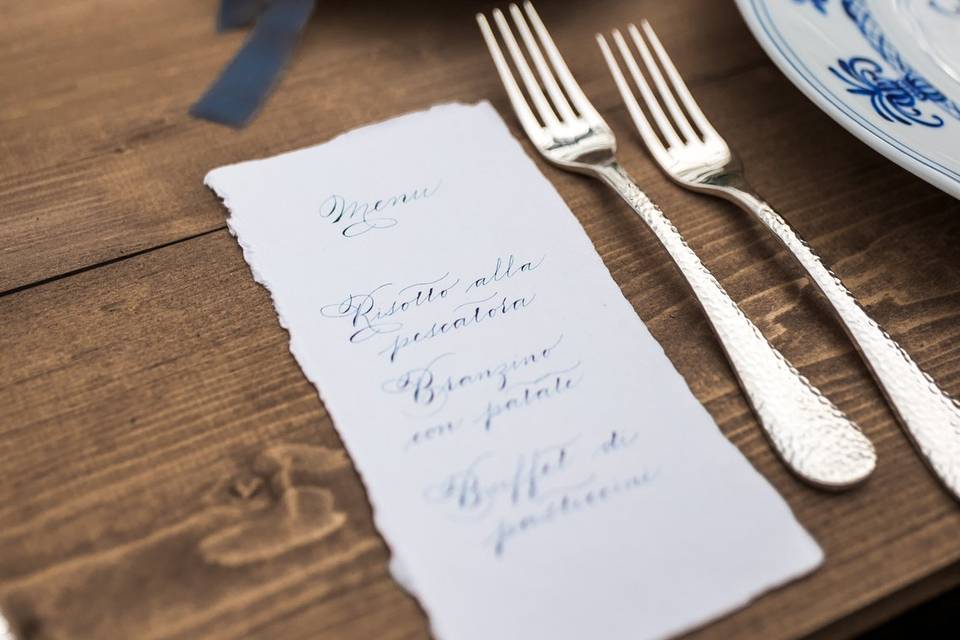 Menu
Risotto alla
pescatora
Branzino
con patate
Buffet di
pasticcini